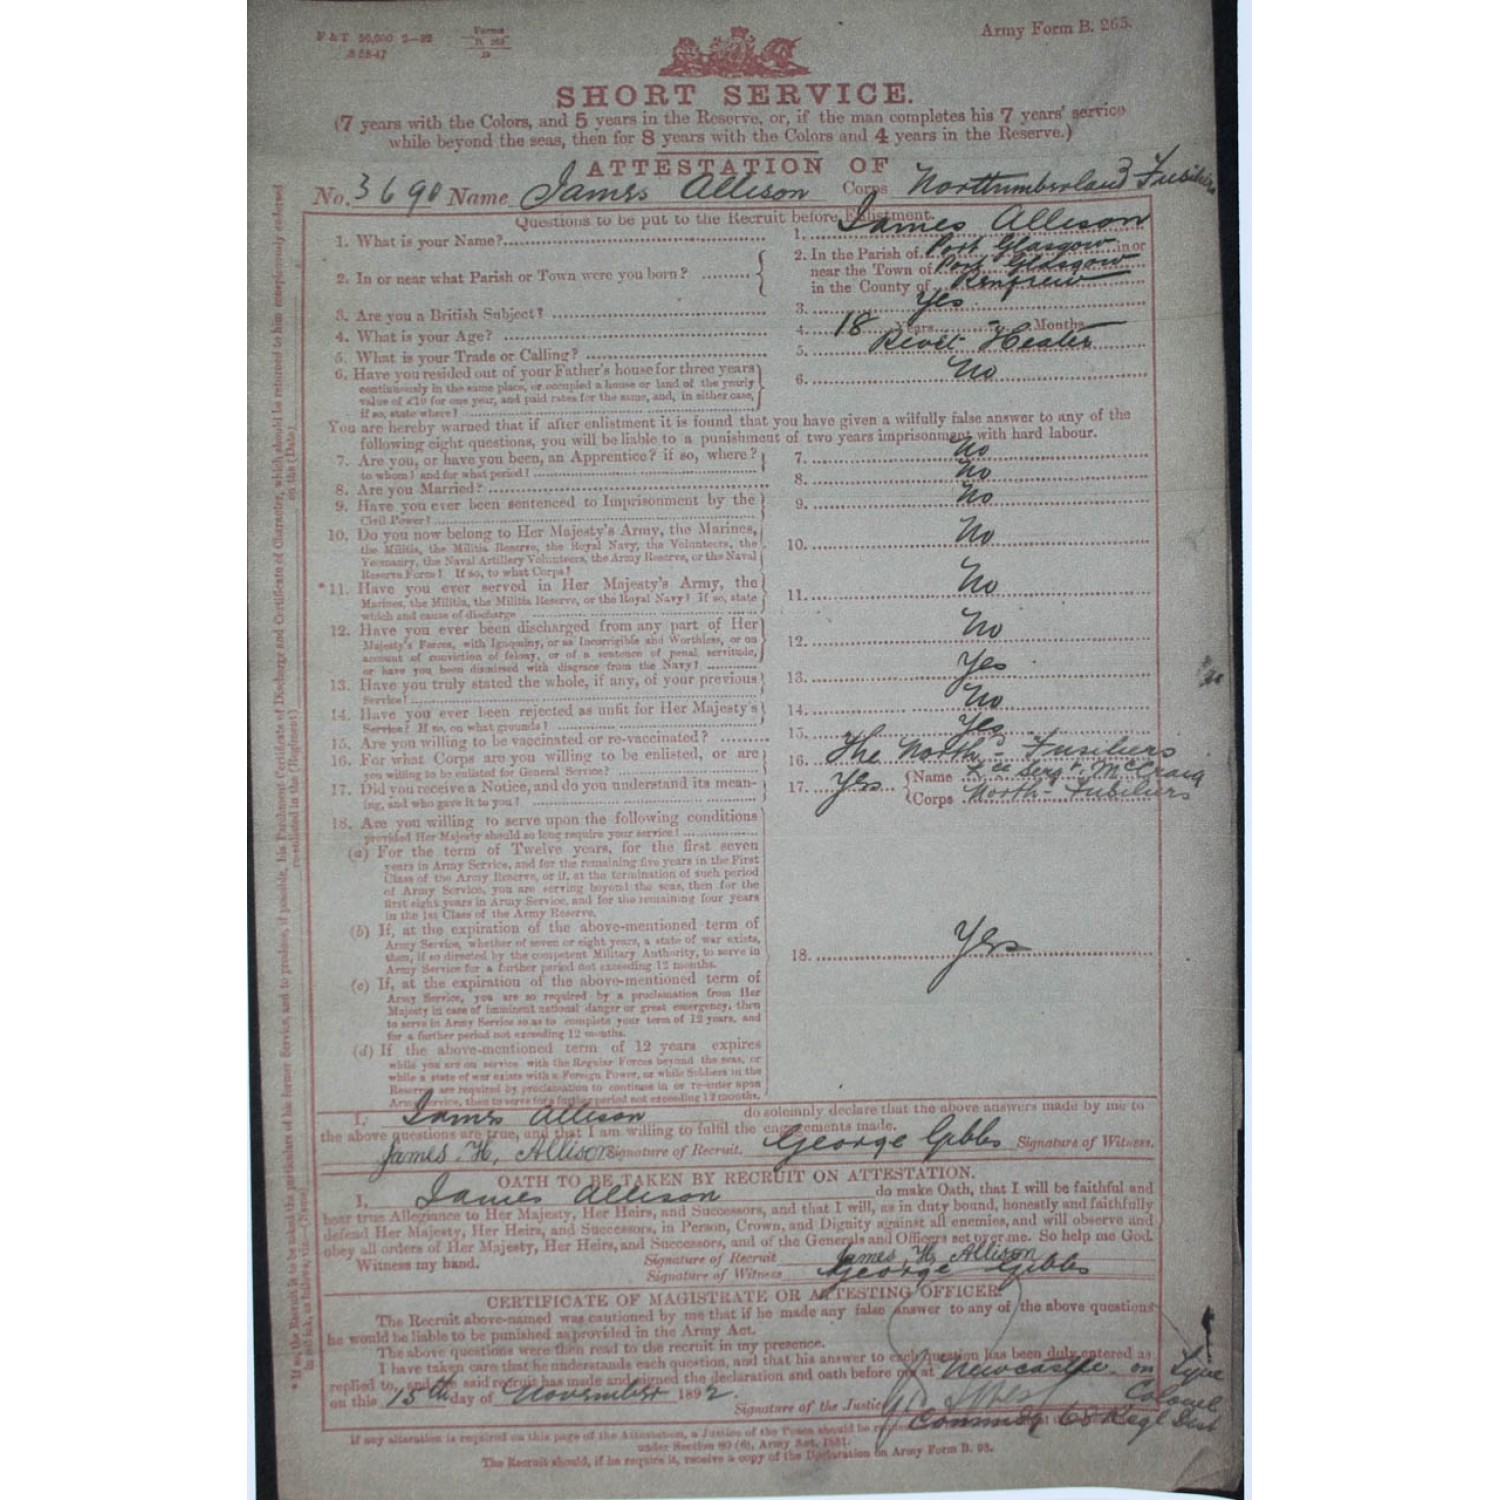 F & T 50,000 2—92
B 28-47
Forms
B. 265
19
Army Form B. 265.
SHORT SERVICE.
(7 years with the Colors, and 5 years in the Reserve, or, if the man completes his 7 years' service
while beyond the seas, then for 8 years with the Colors and 4 years in the Reserve.)
ATTESTATION OF
No. 3690 Name James Allison Corps Northumberland Fusiliers
Questions to be put to the Recruit before Enlistment.
1. What is your Name? 1. James Allison
2. In or near what Parish or Town were you born? 2. In the Parish of Port Glasgow in or
near the Town of Port Glasgow
in the County of Renfrew
3. Are you a British Subject? 3. Yes
4. What is your Age? 4. 18 Years — Months
5. What is your Trade or Calling? 5. Rivet Heater
6. Have you resided out of your Father's house for three years 6. No
continuously in the same place, or occupied a house or land of the yearly
value of £10 for one year, and paid rates for the same, and, in either case,
if so, state where?
You are hereby warned that if after enlistment it is found that you have given a wilfully false answer to any of the
following eight questions, you will be liable to a punishment of two years imprisonment with hard labour.
7. Are you, or have you been, an Apprentice? if so, where? 7. No
to whom? and for what period?
8. Are you Married? 8. No
9. Have you ever been sentenced to Imprisonment by the 9. No
Civil Power?
10. Do you now belong to Her Majesty's Army, the Marines, 10. No
the Militia, the Militia Reserve, the Royal Navy, the Volunteers, the
Yeomanry, the Naval Artillery Volunteers, the Army Reserve, or the Naval
Reserve Force? If so, to what Corps?
*11. Have you ever served in Her Majesty's Army, the 11. No
Marines, the Militia, the Militia Reserve, or the Royal Navy? If so, state
which and cause of discharge
12. Have you ever been discharged from any part of Her 12. No
Majesty's Forces, with Ignominy, or as Incorrigible and Worthless, or on
account of conviction of felony, or of a sentence of penal servitude,
or have you been dismissed with disgrace from the Navy?
13. Have you truly stated the whole, if any, of your previous 13. Yes
Service?
14. Have you ever been rejected as unfit for Her Majesty's 14. No
Service? If so, on what grounds?
15. Are you willing to be vaccinated or re-vaccinated? 15. Yes
16. For what Corps are you willing to be enlisted, or are 16. The North'd Fusiliers
you willing to be enlisted for General Service?
17. Did you receive a Notice, and do you understand its mean- 17. Yes Name Lce Sergt. McCraig
ing, and who gave it to you? Corps North- Fusiliers
18. Are you willing to serve upon the following conditions
provided Her Majesty should so long require your service?
(a) For the term of Twelve years, for the first seven
years in Army Service, and for the remaining five years in the First
Class of the Army Reserve, or if, at the termination of such period
of Army Service, you are serving beyond the seas, then for the
first eight years in Army Service, and for the remaining four years
in the 1st Class of the Army Reserve.
(b) If, at the expiration of the above-mentioned term of
Army Service, whether of seven or eight years, a state of war exists,
then, if so directed by the competent Military Authority, to serve in
Army Service for a further period not exceeding 12 months.
18. Yes
(c) If, at the expiration of the above-mentioned term of
Army Service, you are so required by a proclamation from Her
Majesty in case of imminent national danger or great emergency, then
to serve in Army Service so as to complete your term of 12 years, and
for a further period not exceeding 12 months.
(d) If the above-mentioned term of 12 years expires
while you are on service with the Regular Forces beyond the seas, or
while a state of war exists with a Foreign Power, or while Soldiers in the
Reserve are required by proclamation to continue in or re-enter upon
Army Service, then to serve for a further period not exceeding 12 months.
I, James Allison do solemnly declare that the above answers made by me to
the above questions are true, and that I am willing to fulfil the engagements made.
James H. Allison Signature of Recruit. George Gibbs Signature of Witness.
OATH TO BE TAKEN BY RECRUIT ON ATTESTATION.
I, James Allison do make Oath, that I will be faithful and
bear true Allegiance to Her Majesty, Her Heirs, and Successors, and that I will, as in duty bound, honestly and faithfully
defend Her Majesty, Her Heirs, and Successors, in Person, Crown, and Dignity against all enemies, and will observe and
obey all orders of Her Majesty, Her Heirs, and Successors, and of the Generals and Officers set over me. So help me God.
Witness my hand. Signature of Recruit James H. Allison
Signature of Witness George Gibbs
CERTIFICATE OF MAGISTRATE OR ATTESTING OFFICER.
The Recruit above-named was cautioned by me that if he made any false answer to any of the above questions
he would be liable to be punished as provided in the Army Act.
The above questions were then read to the recruit in my presence.
I have taken care that he understands each question, and that his answer to each question has been duly entered as
replied to, and the said recruit has made and signed the declaration and oath before me at Newcastle on Tyne
on this 15th day of November 1892.
Signature of the Justice Colonel
Commdg 68 Regl Dist
If any alteration is required on this page of the Attestation, a Justice of the Peace should be
under Section 80 (6), Army Act, 1881.
The Recruit should, if he require it, receive a copy of the Declaration on Army Form B. 98.
* If so, the Recruit is to be asked the particulars of his former Service, and to produce, if possible, his Parchment Certificate of Discharge and Certificate of Character, which should be returned to him conspicuously endorsed
in red ink, as follows, viz:—(Name) re-enlisted in the (Regiment) on the (Date)